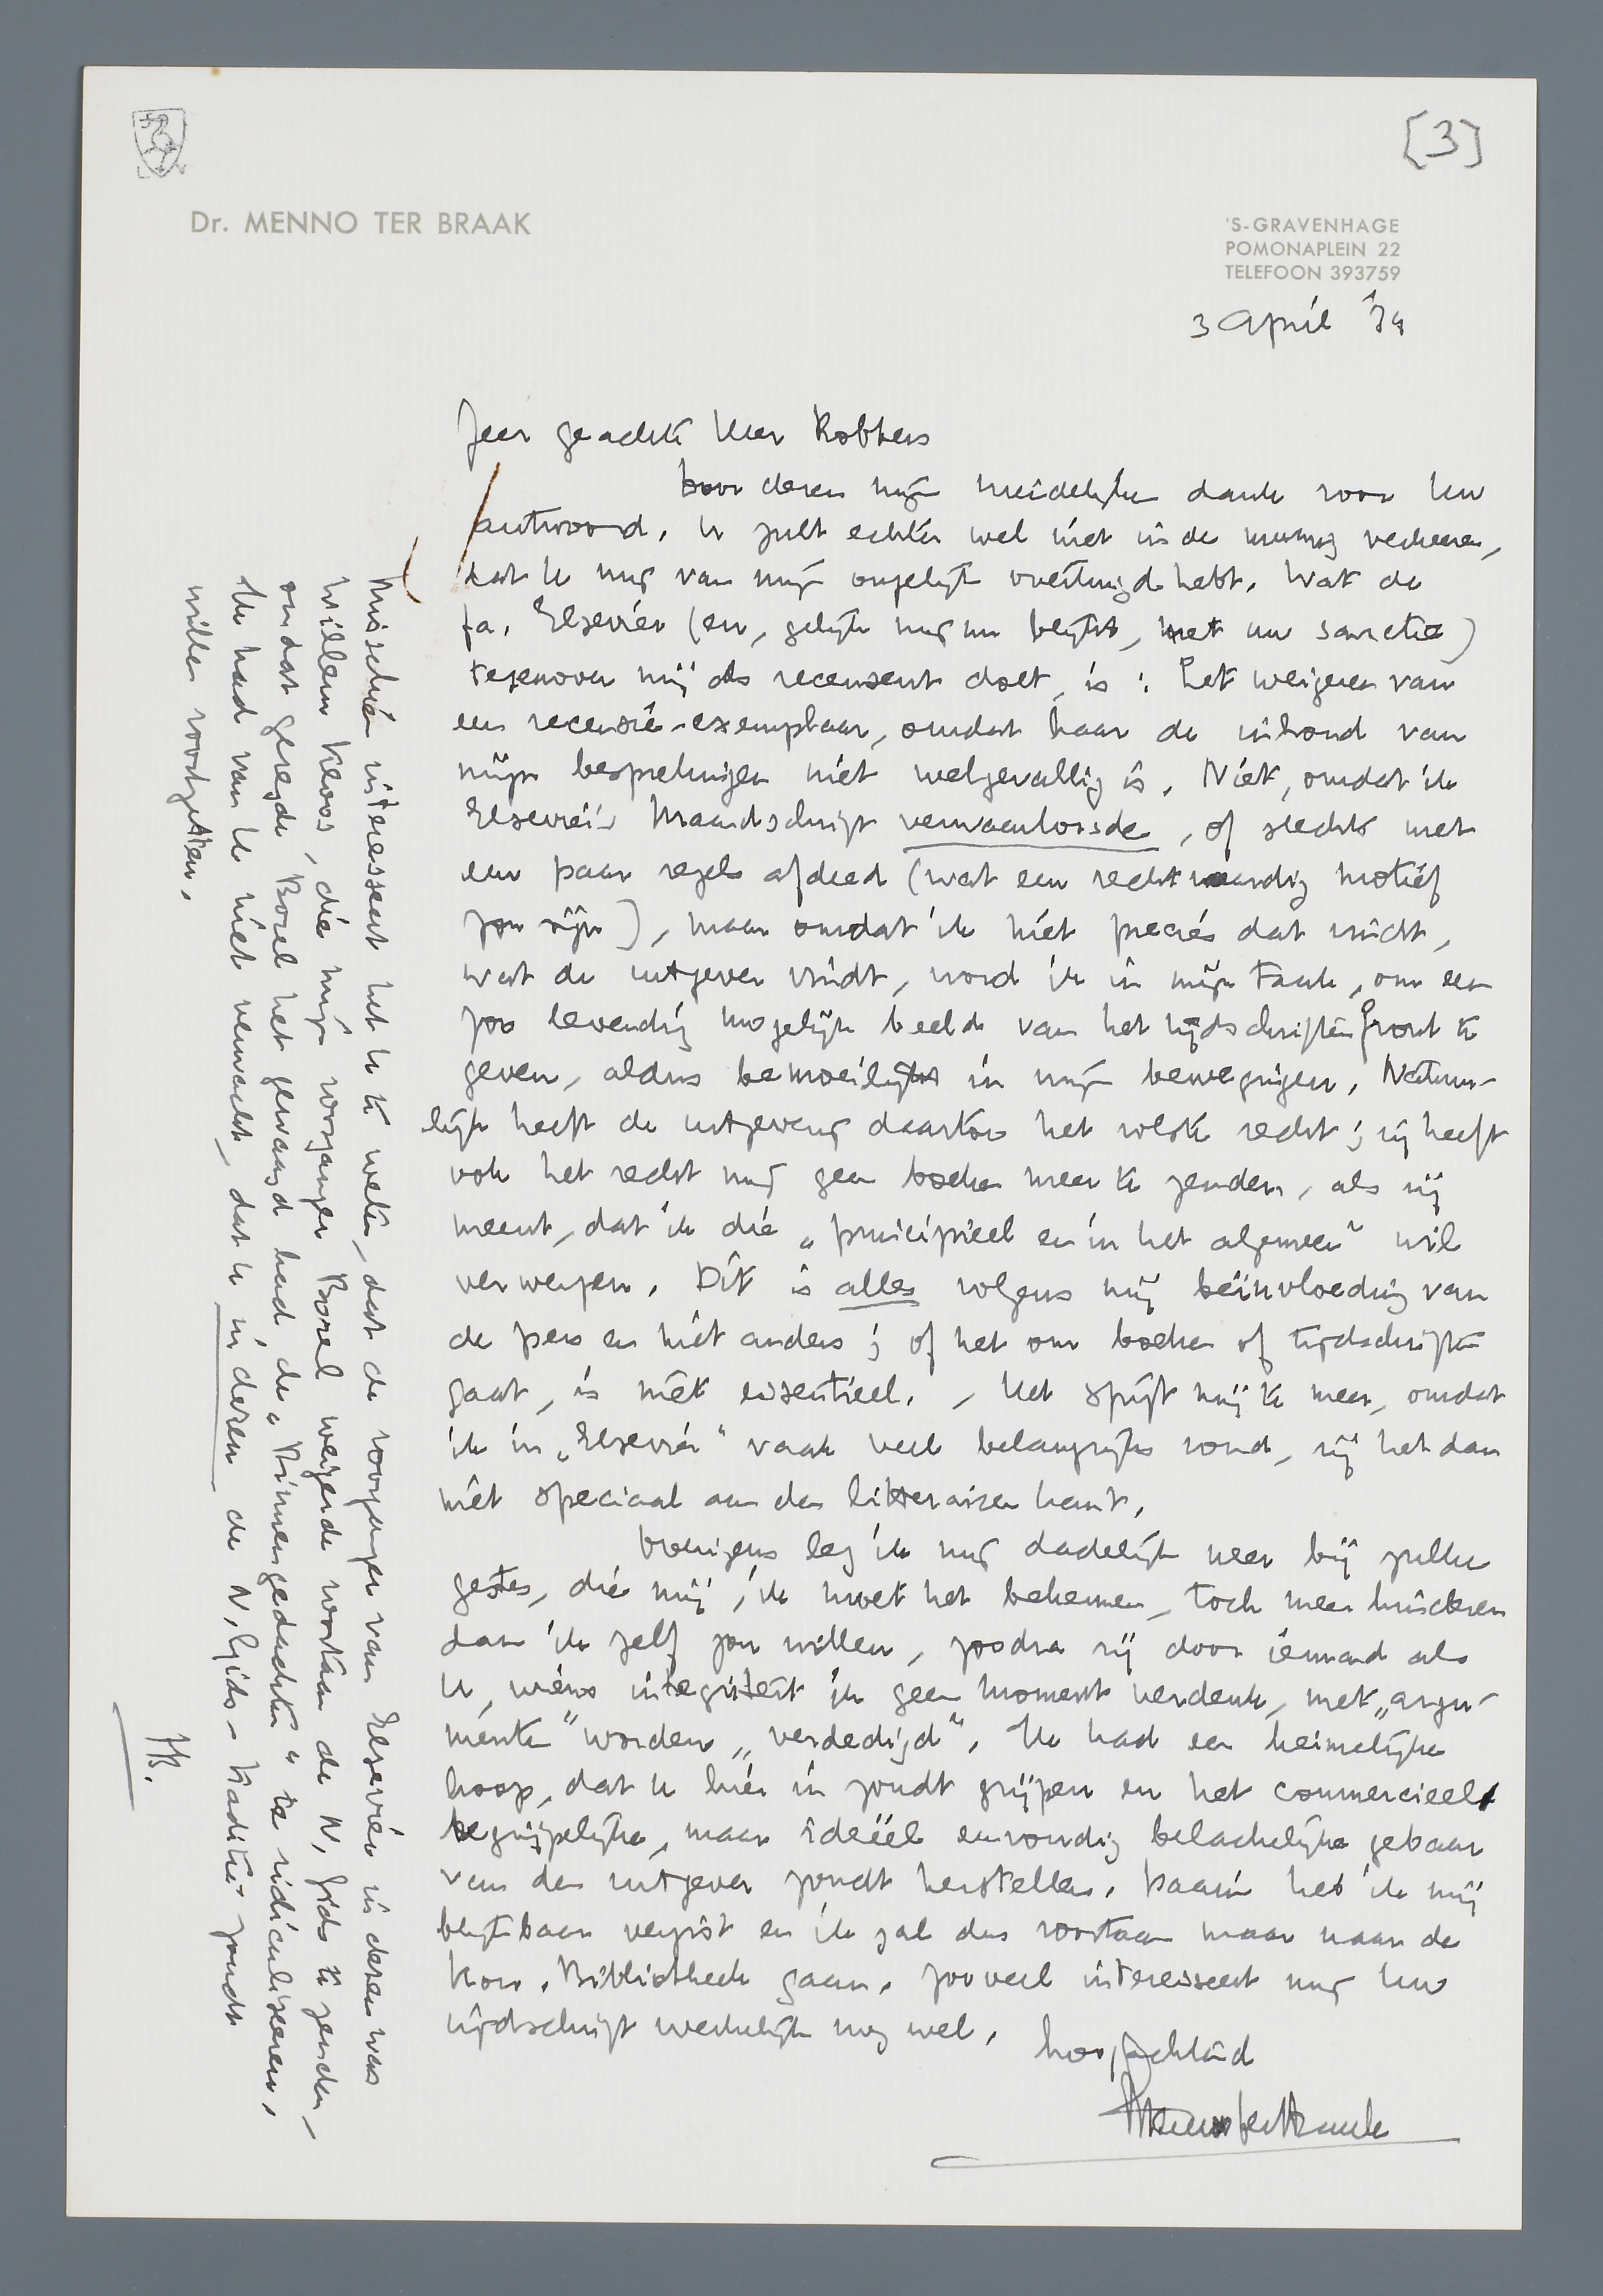 [3]
Dr. MENNO TER BRAAK
'S-GRAVENHAGE
POMONAPLEIN 22
TELEFOON 393759
3 April '34
Zeer geachte Heer Robbers
Door dezen mijn vriendelijken dank voor Uw
antwoord. U zult echter wel niet in de meening verkeeren,
dat U mij van mijn ongelijk overtuigd hebt. Wat de
fa. Elsevier (en, gelijk mij nu blijkt, met uw sanctie)
tegenover mij als recensent doet, is: het weigeren van
een recensie-exemplaar, omdat haar de inhoud van
mijn besprekingen niet welgevallig is. Niet, omdat ik
Elsevier's Maandschrift verwaarloosde, of slechts met
een paar regels afdeed (wat een rechtvaardig motief
zou zijn), maar omdat ik niet precies dat vindt,
wat de uitgever vindt, word ik in mijn taak, om een
zoo levendig mogelijk beeld van het tijdschriftenfront te
geven, aldus bemoeilijkt in mijn bewegingen. Natuur-
lijk heeft de uitgever daartoe het volste recht; hij heeft
ook het recht mij geen boeken meer te zenden, als hij
meent, dat ik die „principieel en in het algemeen" wil
verwerpen. Dit is alles volgens mij beïnvloeding van
de pers en niet anders; of het om boeken of tijdschriften
gaat, is niet essentieel. Het spijt mij te meer, omdat
ik in „Elsevier" vaak veel belangrijks vond, zij het dan
niet speciaal aan den litterairen kant.
Overigens leg ik mij dadelijk neer bij zulke
gestes, die mij, ik moet het bekennen, toch meer hinderen
dan ik zelf zou willen, zoodra zij door iemand als
U, wiens integriteit ik geen moment verdenk, met „argu-
menten" worden „verdedigd". Ik had een heimelijke
hoop, dat U hier in zoudt grijpen en het commercieel
begrijpelijke, maar ideëel eenvoudig belachelijke gebaar
van den uitgever zoudt herstellen. Daarin heb ik mij
blijkbaar vergist en ik zal dus voortaan maar naar de
Kon. Bibliotheek gaan. Zooveel interesseert mij Uw
tijdschrift werkelijk nog wel.
Hoogachtend
Menno ter Braak
Misschien interesseert het U te weten, dat de voorganger van Elsevier in dezen was
Willem Kloos, die mijn voorganger Borel weigerde voortaan de N. Gids te zenden,
omdat gezegde Borel het gewaagd had, de „Binnengedachten" te ridiculiseeren.
Ik had van U niet verwacht, dat U in dezen de N. Gids-traditie zoudt
willen voortzetten.